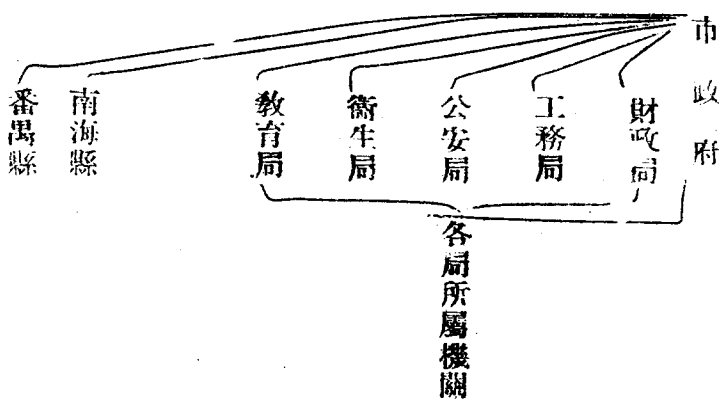 市政府
財政局
工務局
公安局
衞生局
教育局
南海縣
番禺縣
各局所屬機關